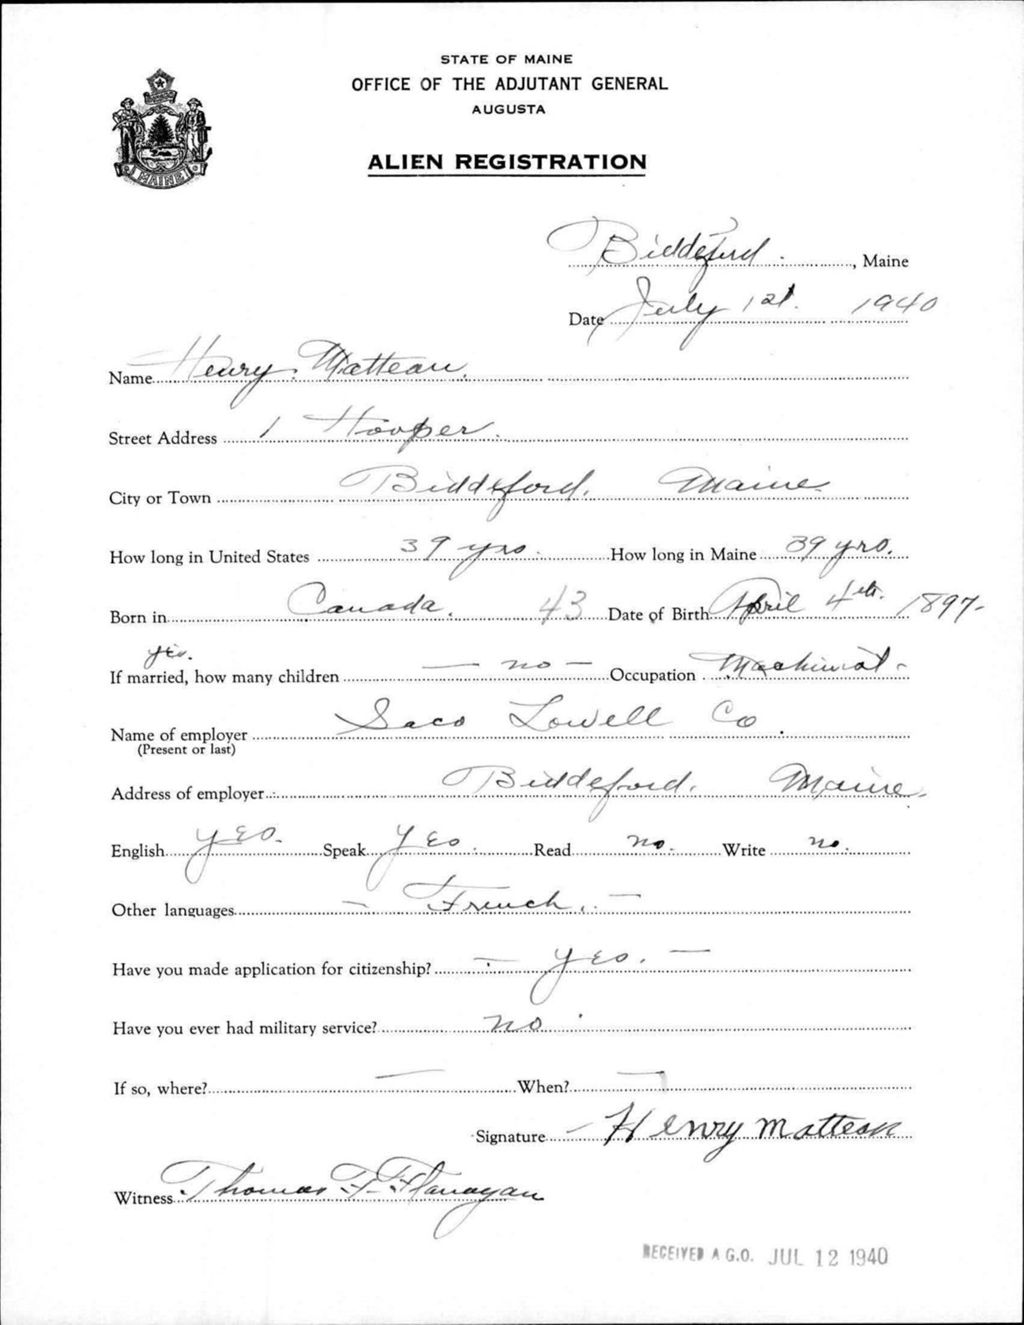 STATE OF MAINE
OFFICE OF THE ADJUTANT GENERAL
AUGUSTA
ALIEN REGISTRATION
MAINE
Biddeford, Maine
Date July 1st. 1940
Name Henry Matteau.
Street Address 1 Hooper.
City or Town Biddeford. Maine
How long in United States 39 yrs. How long in Maine 39 yrs.
Born in Canada. 43 Date of Birth April 4th. 1897-
yes.
If married, how many children — no — Occupation Machinist-
Name of employer Saco Lowell Co
(Present or last)
Address of employer Biddeford. Maine.
English yes. Speak yes Read no. Write no.
Other languages — French. —
Have you made application for citizenship? — yes. —
Have you ever had military service? no
If so, where? — When? —
Signature Henry Matteau
Witness Thomas F. Flanagan
RECEIVED A.G.O. JUL 12 1940